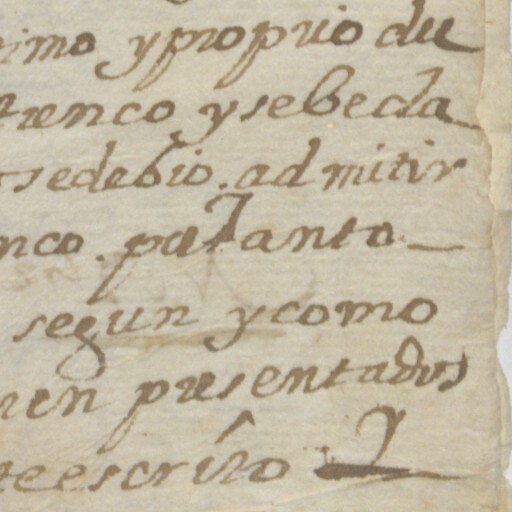 timo y proprio du
trenco, y se beda
se debio. admitir
nco. paĩ anto
segun y como
nen presentados
te escrito